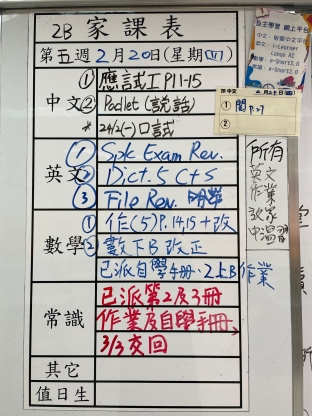 2B 家課表
第五週2月20日(星期四)
中文
① 應試工P.11-15
② Padlet (說話)
* 24/2(一)口試
英文
① Spk Exam Rev.
② Dict 5 C+S
③ File Rev. 明帶
數學
① 作(5)P.14,15+改
② 數下B改正
已派自學手冊、2上B作業
常識
已派第2及3冊
作業及自學手冊、
3/3交回
其它
值日生
自主學習 網上平台
2B 中文
①
②
所有
英文
作業
派家
中溫習